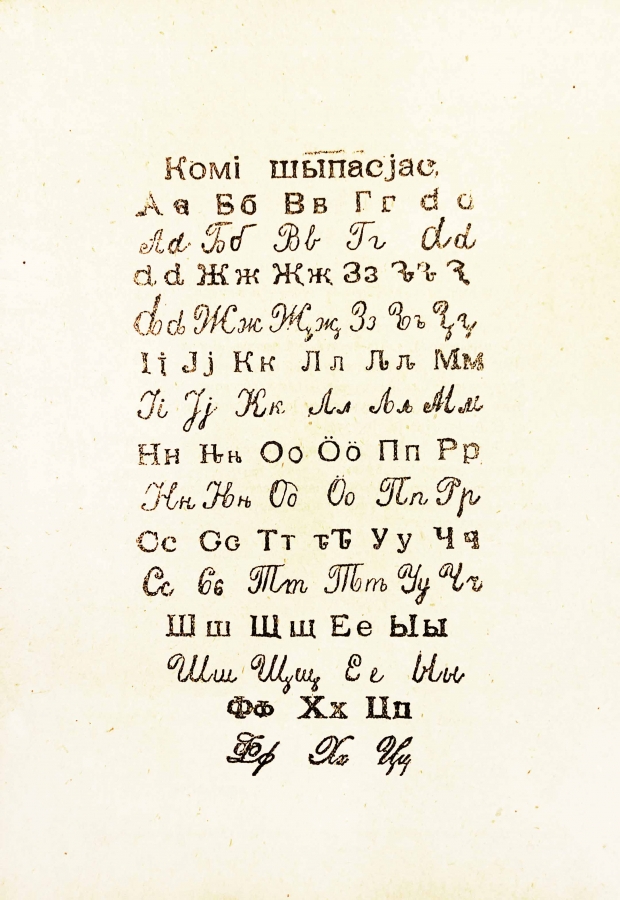 Комі шыпасјас.
Аа Бб Вв Гг Ԁԁ
Аа Бб Вв Гг Ԁԁ
Ԃԃ Жж Җҗ Зз Ԅԅ Ԇ
Ԃԃ Жж Җҗ Зз Ԅԅ Ԇԇ
Іі Јј Кк Лл Ԉԉ Мм
Іі Јј Кк Лл Ԉԉ Мм
Нн Ԋԋ Оо Ӧӧ Пп Рр
Нн Ԋԋ Оо Ӧо Пп Рр
Сс Ԍԍ Тт ԏԎ Уу Чч
Сс Ԍԍ Тт Ԏԏ Уу Чч
Шш Щщ Ее Ыы
Шш Щщ Ее Ыы
Фф Хх Цп
Фф Хх Цц